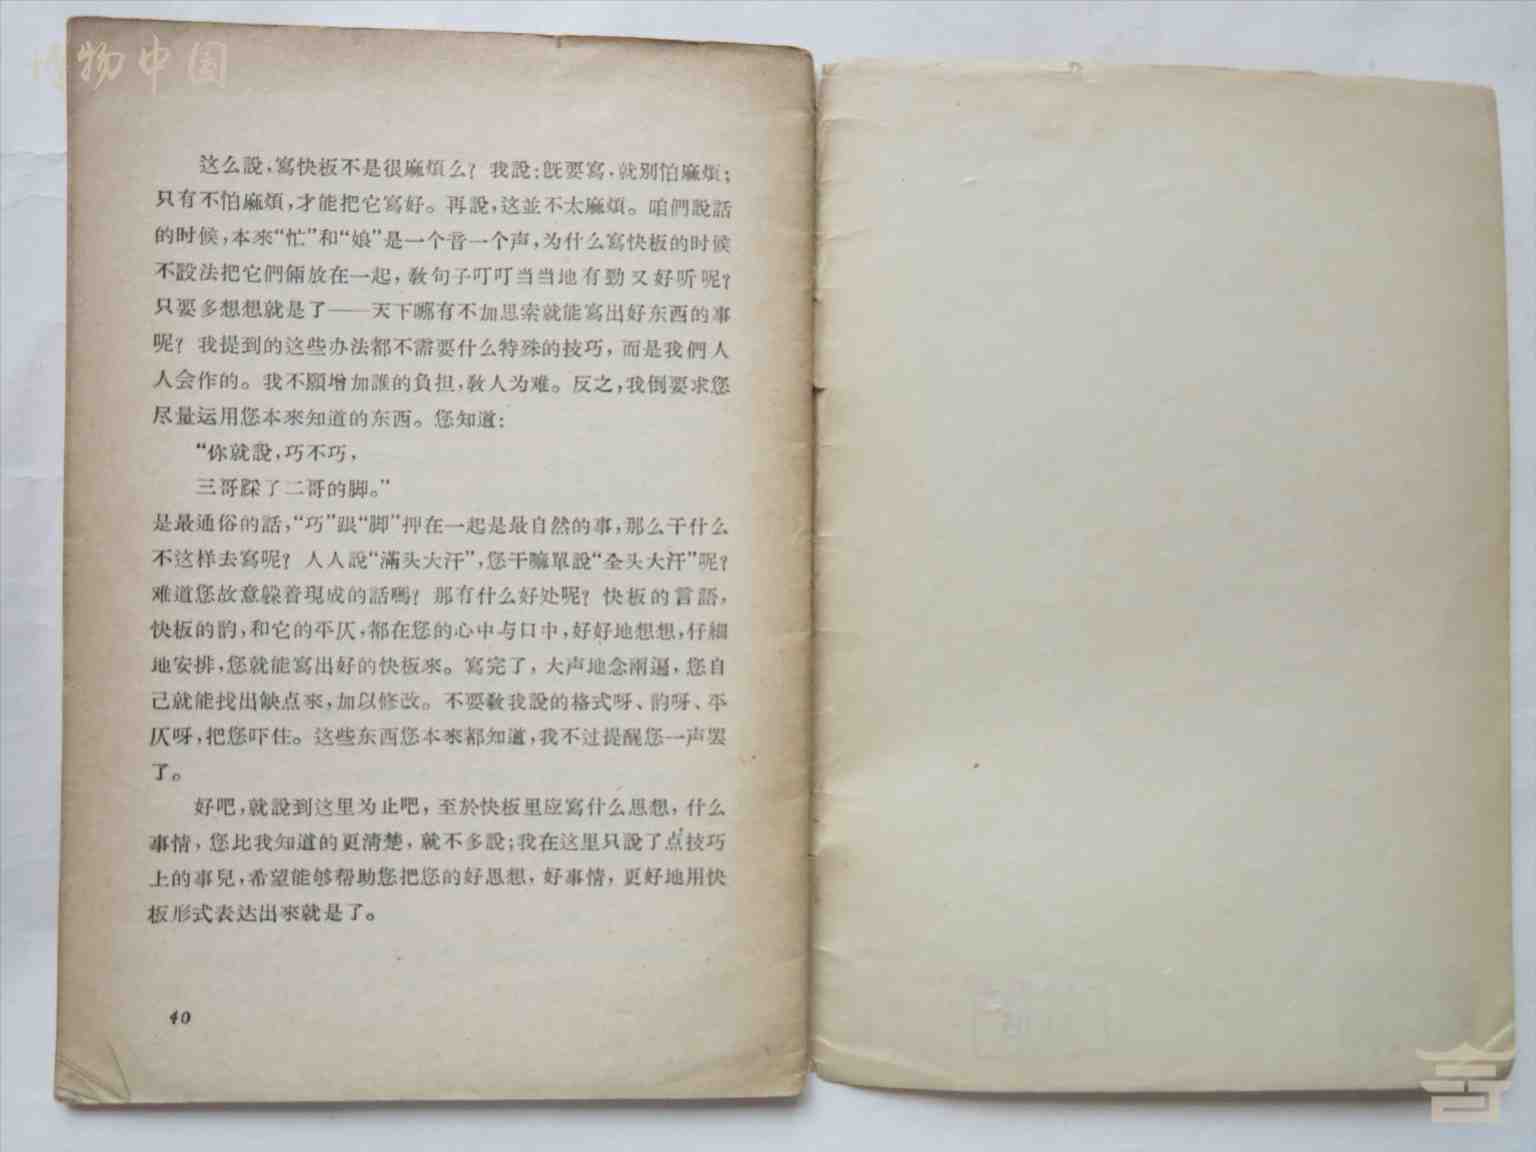 博物中国
这么說，寫快板不是很麻煩么？我說：旣要寫，就别怕麻煩；
只有不怕麻煩，才能把它寫好。再說，这並不太麻煩。咱們說話
的时候，本來“忙”和“娘”是一个音一个声，为什么寫快板的时候
不設法把它們倆放在一起，敎句子叮叮当当地有勁又好听呢？
只要多想想就是了——天下哪有不加思索就能寫出好东西的事
呢？我提到的这些办法都不需要什么特殊的技巧，而是我們人
人会作的。我不願增加誰的負担，敎人为难。反之，我倒要求您
尽量运用您本來知道的东西。您知道：
“你就說，巧不巧，
三哥踩了二哥的脚。”
是最通俗的話，“巧”跟“脚”押在一起是最自然的事，那么干什么
不这样去寫呢？人人說“滿头大汗”，您干嘛單說“全头大汗”呢？
难道您故意躱着現成的話嗎？那有什么好处呢？快板的言語，
快板的韵，和它的平仄，都在您的心中与口中，好好地想想，仔細
地安排，您就能寫出好的快板來。寫完了，大声地念兩遍，您自
己就能找出缺点來，加以修改。不要敎我說的格式呀、韵呀、平
仄呀，把您吓住。这些东西您本來都知道，我不过提醒您一声罢
了。
好吧，就說到这里为止吧，至於快板里应寫什么思想，什么
事情，您比我知道的更清楚，就不多說；我在这里只說了点技巧
上的事兒，希望能够帮助您把您的好思想，好事情，更好地用快
板形式表达出來就是了。
40